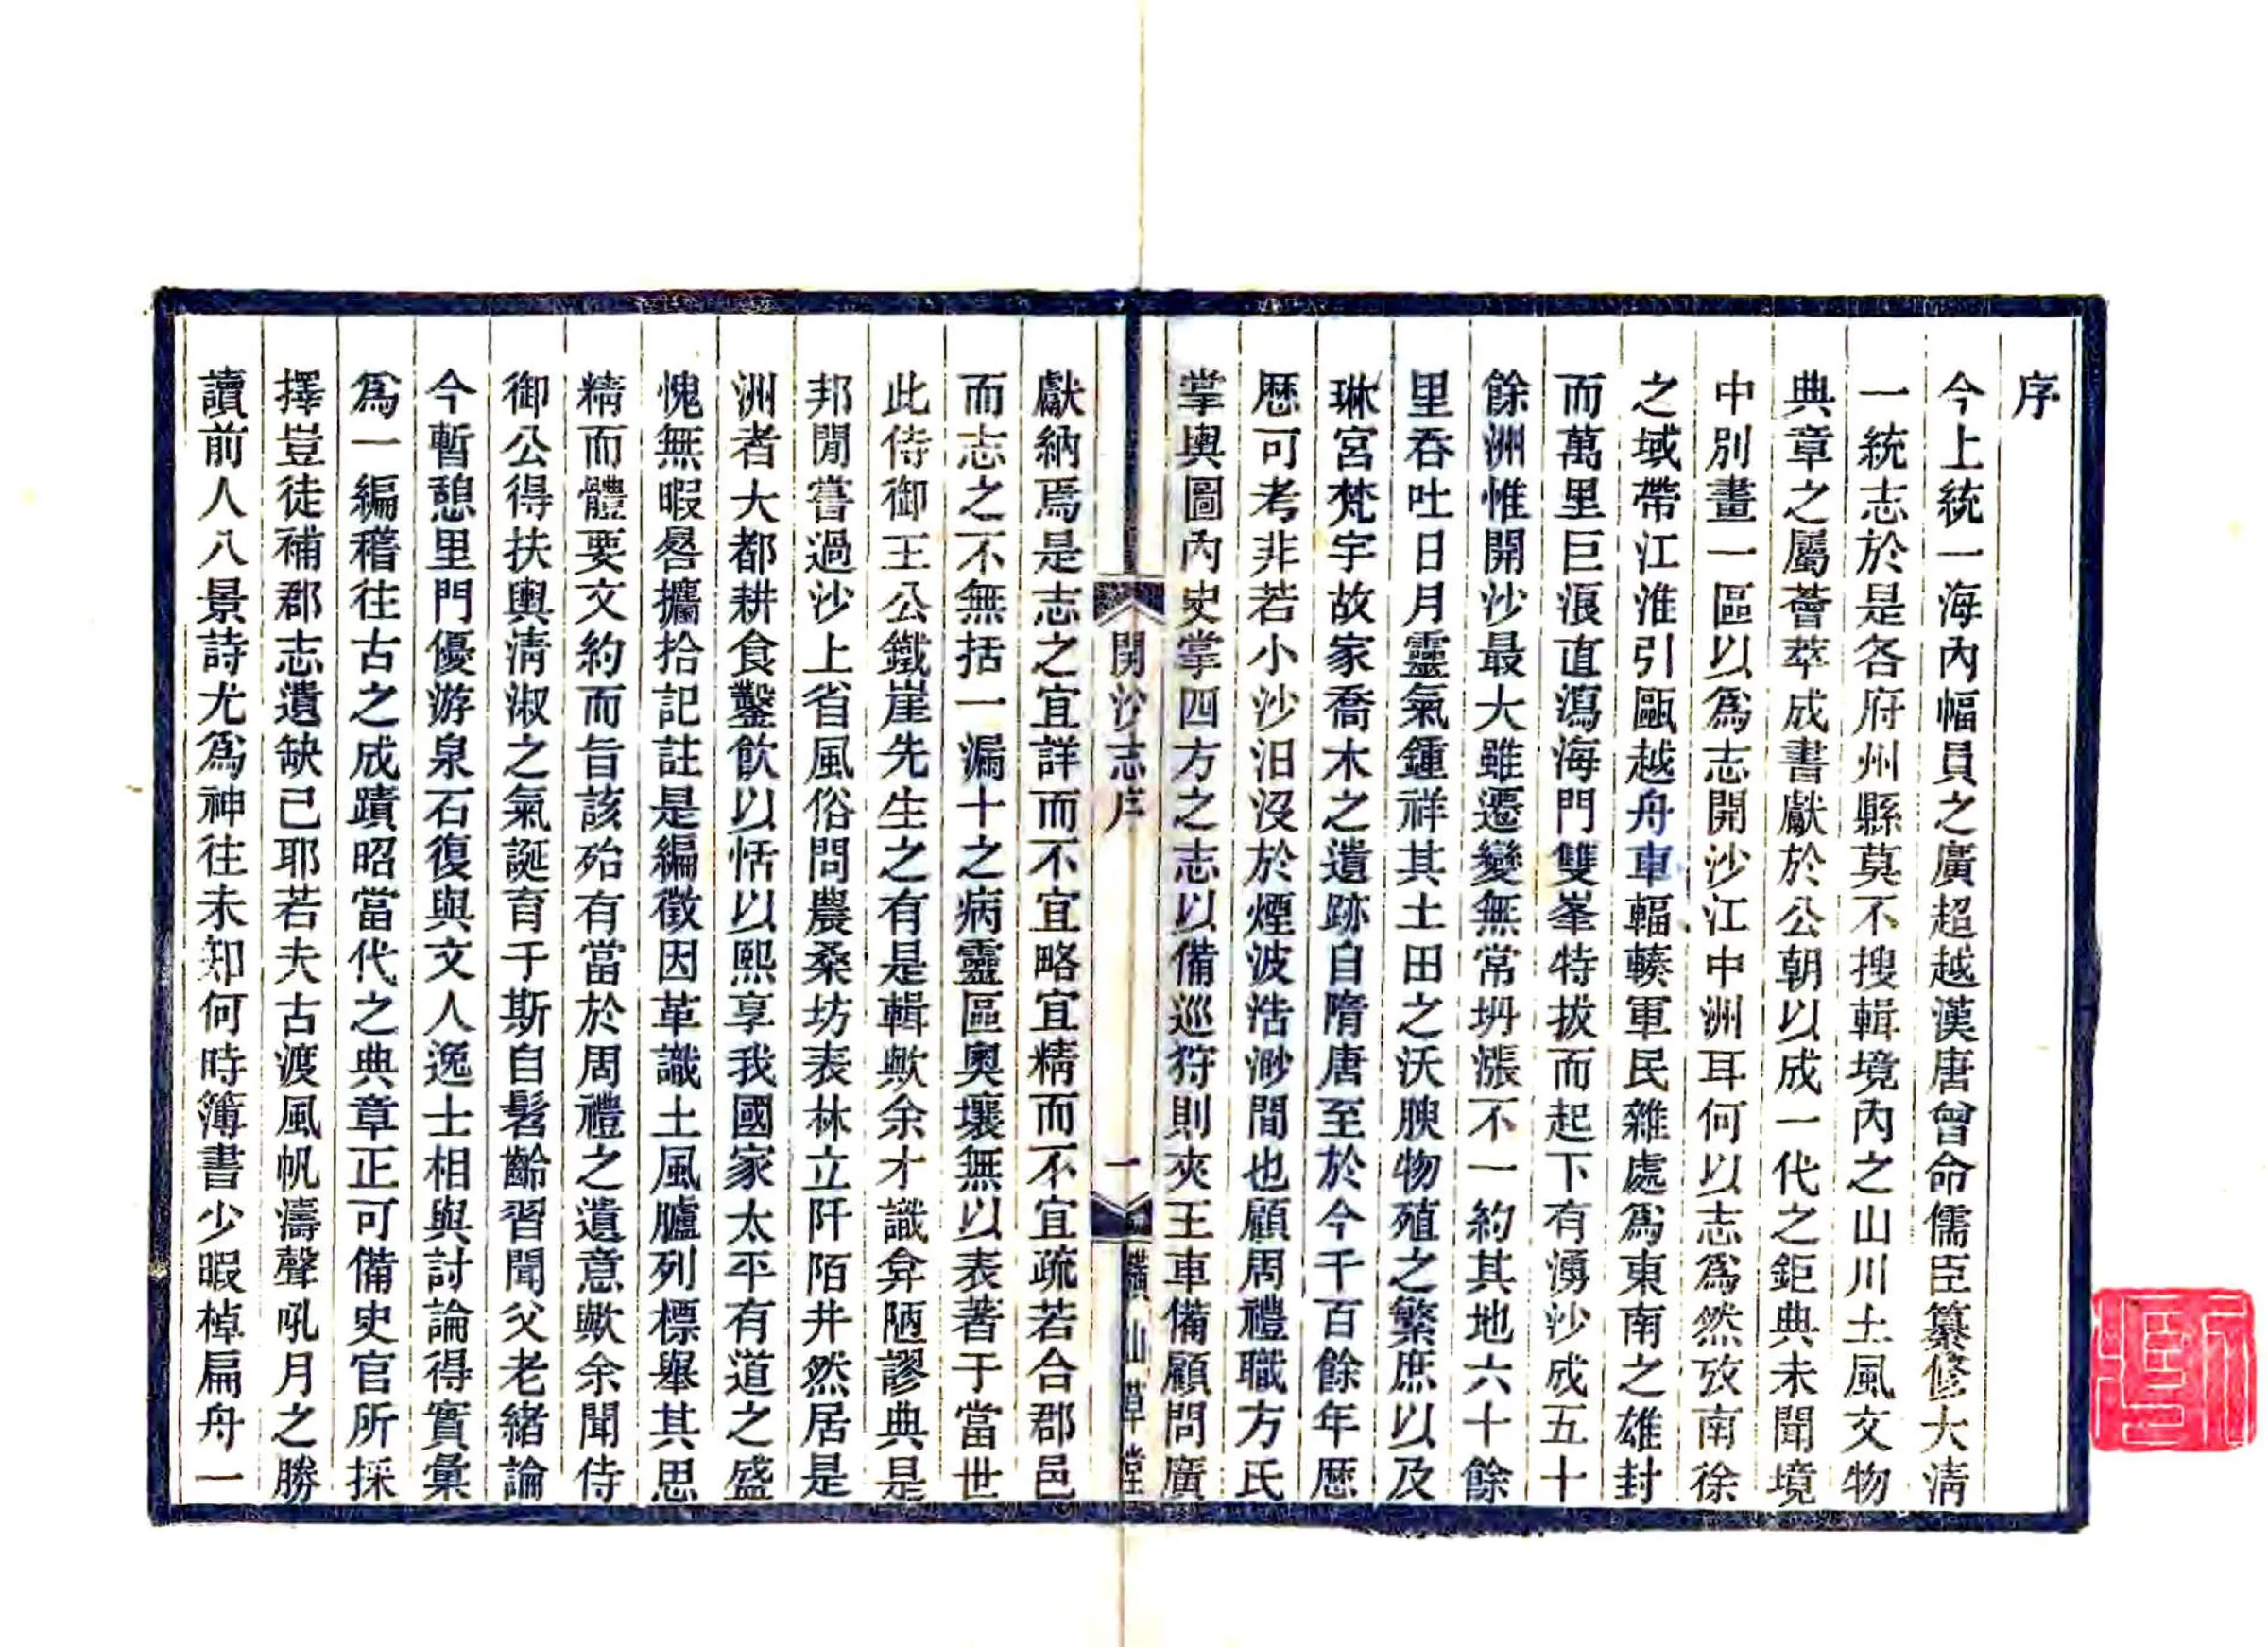 序
今上統一海內幅員之廣超越漢唐曾命儒臣纂修大淸
一統志於是各府州縣莫不搜輯境內之山川土風文物
典章之屬薈萃成書獻於公朝以成一代之鉅典未聞境
中別畫一區以爲志開沙江中洲耳何以志爲然攷南徐
之域帶江淮引甌越舟車輻轃軍民雜處爲東南之雄封
而萬里巨浪直瀉海門雙峯特拔而起下有湧沙成五十
餘洲惟開沙最大雖遷變無常坍漲不一約其地六十餘
里吞吐日月靈氣鍾祥其土田之沃腴物殖之繁庶以及
琳宮梵宇故家喬木之遺跡自隋唐至於今千百餘年歷
歷可考非若小沙汨沒於煙波浩渺間也顧周禮職方氏
掌輿圖內史掌四方之志以備巡狩則夾王車備顧問廣
開沙志序
一
橫山草堂
獻納焉是志之宜詳而不宜略宜精而不宜疏若合郡邑
而志之不無括一漏十之病靈區奧壤無以表著于當世
此侍御王公鐵崖先生之有是輯歟余才識弇陋謬典是
邦閒嘗過沙上省風俗問農桑坊表林立阡陌井然居是
洲者大都耕食鑿飮以恬以熙享我國家太平有道之盛
愧無暇晷攟拾記註是編徵因革識土風臚列標舉其思
精而體要文約而旨該殆有當於周禮之遺意歟余聞侍
御公得扶輿淸淑之氣誕育于斯自髫齡習聞父老緒論
今暫憩里門優游泉石復與文人逸士相與討論得實彙
爲一編稽往古之成蹟昭當代之典章正可備史官所採
擇豈徒補郡志遺缺已耶若夫古渡風帆濤聲吼月之勝
讀前人八景詩尤爲神往未知何時簿書少暇棹扁舟一